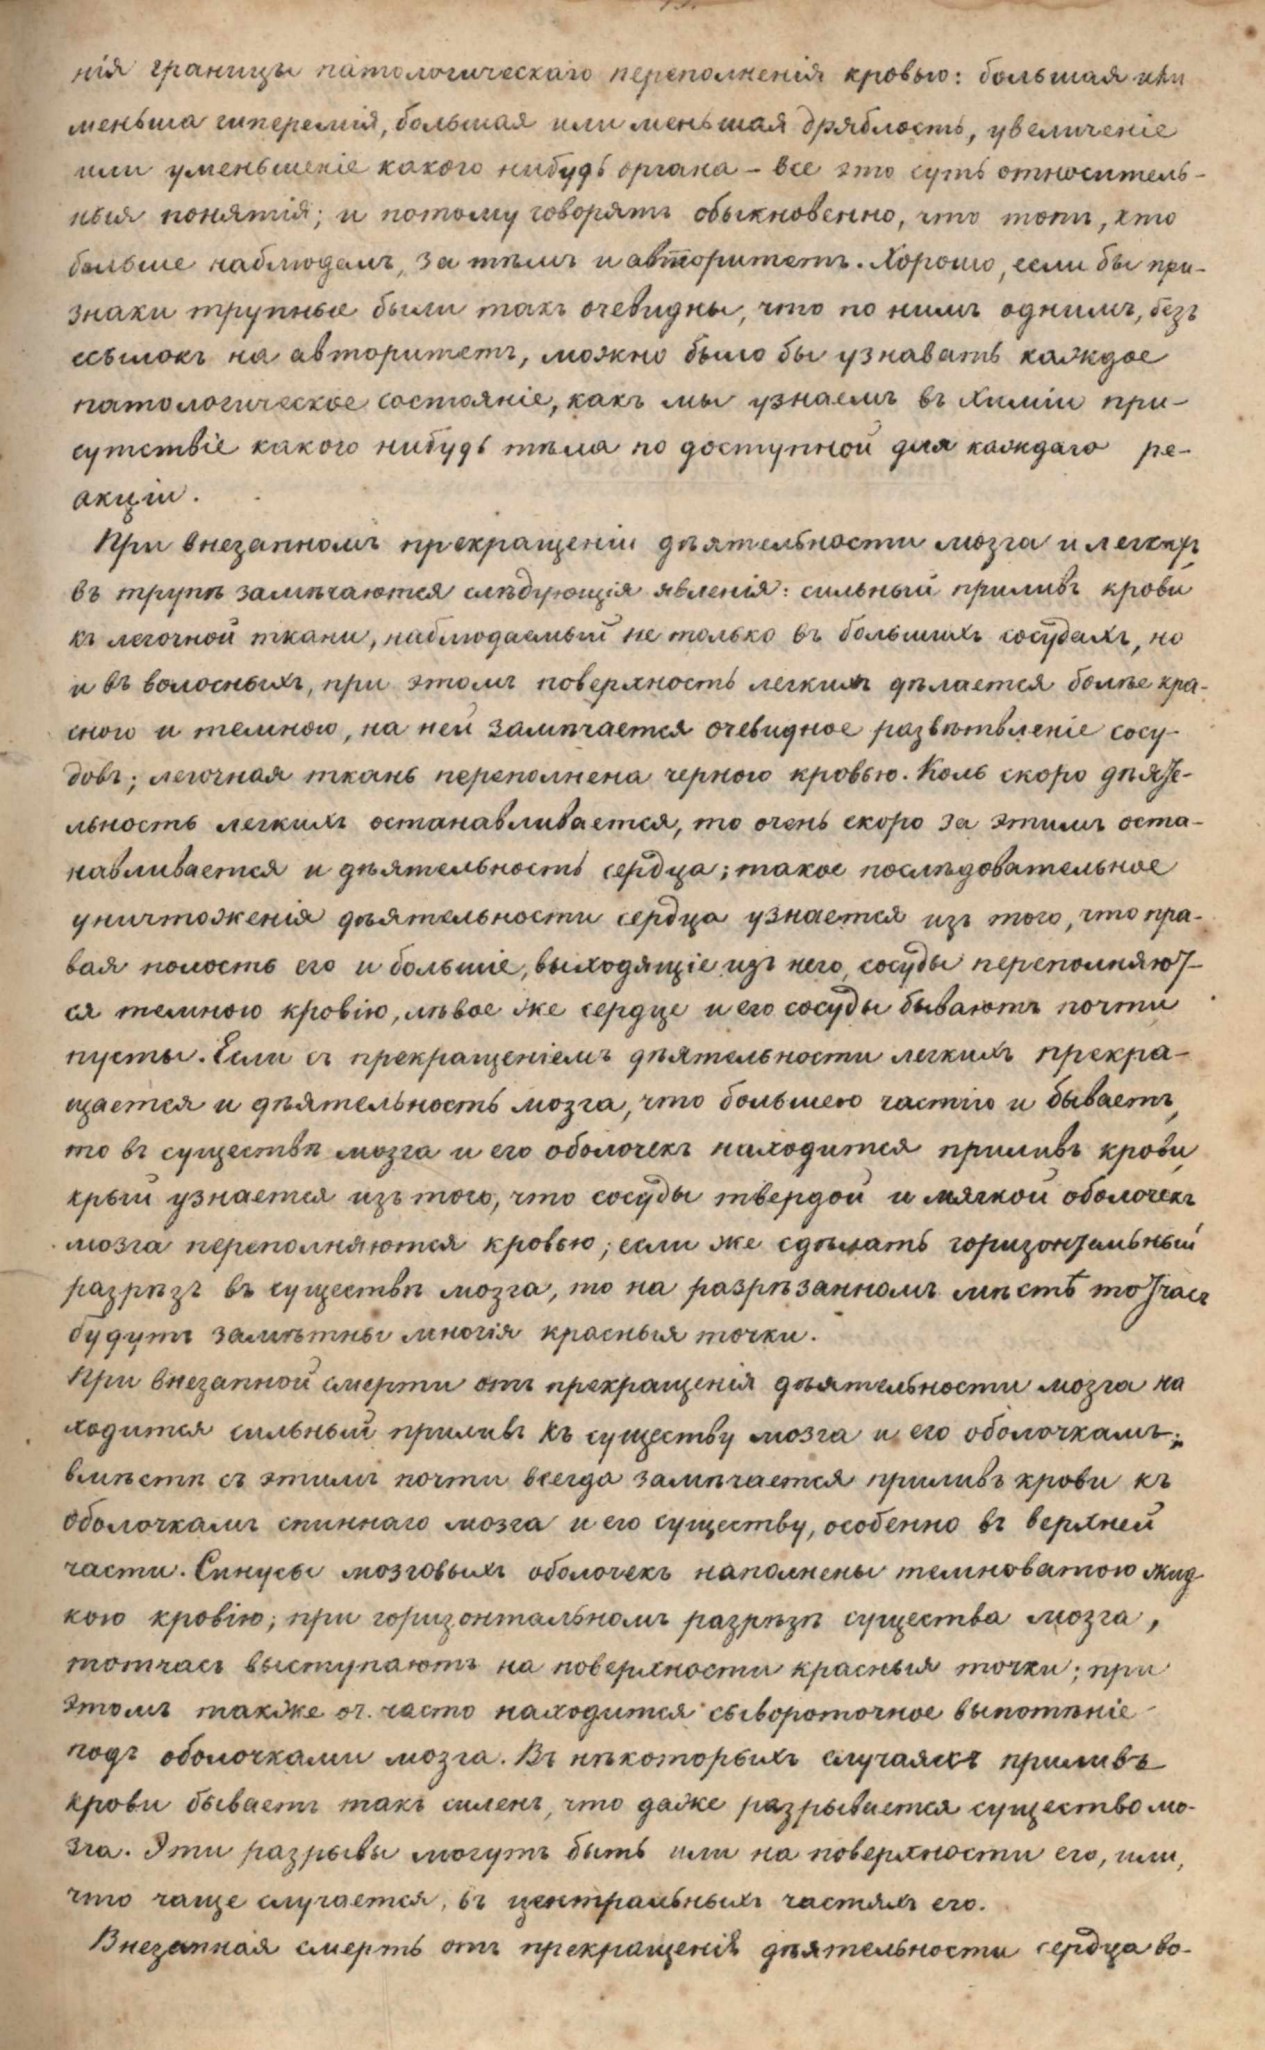 нія границы патологическаго переполненія кровью: большая или
меньша гиперемія, большая или меньшая дряблость, увеличеніе
или уменьшеніе какого нибудь органа – все это суть относитель-
ныя понятія; и потому говорятъ обыкновенно, что тотъ, кто
больше наблюдалъ, за тѣмъ и авторитетъ. Хорошо, если бы при-
знаки трупные были такъ очевидны, что по нимъ однимъ, безъ
ссылокъ на авторитетъ, можно было бы узнавать каждое
патологическое состояніе, какъ мы узнаемъ въ Химіи при-
сутствіе какого нибудь тѣла по доступной для каждаго ре-
акціи.
При внезапномъ прекращеніи дѣятельности мозга и легкихъ
въ трупѣ замѣчаются слѣдующія явленія: сильный приливъ крови
къ легочной ткани, наблюдаемый не только въ большихъ сосудахъ, но
и въ волосныхъ, при этомъ поверхность легкихъ дѣлается болѣе кра-
сною и темною, на ней замѣчается очевидное развѣтвленіе сосу-
довъ; легочная ткань переполнена черною кровью. Коль скоро дѣяте-
льность легкихъ останавливается, то очень скоро за этимъ оста-
навливается и дѣятельность сердца; такое послѣдовательное
уничтоженія дѣятельности сердца узнается изъ того, что пра-
вая полость его и большіе, выходящіе изъ него, сосуды переполняют-
ся темною кровію, лѣвое же сердце и его сосуды бываютъ почти
пусты. Если съ прекращеніемъ дѣятельности легкихъ прекра-
щается и дѣятельность мозга, что большею частію и бываетъ,
то въ существѣ мозга и его оболочекъ находится приливъ крови,
крый узнается изъ того, что сосуды твердой и мягкой оболочекъ
мозга переполняются кровью; если же сдѣлать горизонтальный
разрѣзъ въ существѣ мозга, то на разрѣзанномъ мѣстѣ тотчасъ
будутъ замѣтны многія красныя точки.
При внезапной смерти отъ прекращенія дѣятельности мозга на
ходится сильный приливъ къ существу мозга и его оболочкамъ;
вмѣстѣ съ этимъ почти всегда замѣчается приливъ крови къ
оболочкамъ спиннаго мозга и его существу, особенно въ верхней
части. Синусы мозговыхъ оболочекъ наполнены темноватою жид
кою кровію; при горизонтальномъ разрѣзѣ существа мозга,
тотчасъ выступаютъ на поверхности красныя точки; при
этомъ также оч. часто находится сывороточное выпотѣніе
подъ оболочками мозга. Въ нѣкоторыхъ случаяхъ приливъ
крови бываетъ такъ силенъ, что даже разрывается существо мо-
зга. Эти разрывы могутъ быть или на поверхности его, или,
что чаще случается, въ центральныхъ частяхъ его.
Внезапная смерть отъ прекращенія дѣятельности сердца во-